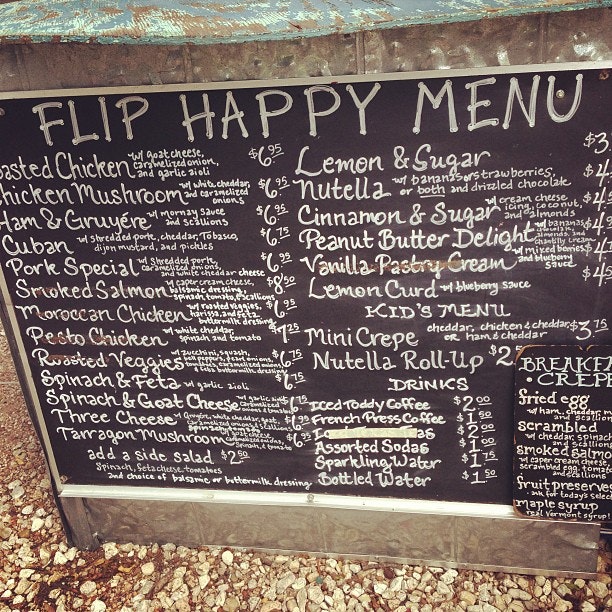 FLIP HAPPY MENU
Chicken w/ goat cheese, caramelized onion, and garlic aioli $6.95
Chicken Mushroom w/ white cheddar, and caramelized onions $6.95
Ham & Gruyére w/ mornay sauce and scallions $6.95
Cuban w/ shredded pork, cheddar, Tobasco, dijon mustard, and pickles $6.75
Pork Special w/ Shredded pork, caramelized onions, white cheddar cheese $6.95
Smoked Salmon w/ caper cream cheese, balsamic dressing, spinach, tomato, & scallions $8.50
Moroccan Chicken w/ roasted veggies, harissa, and feta buttermilk dressing $6.95
Pesto Chicken w/ white cheddar, spinach and tomato $7.25
Roasted Veggies w/ zucchini, squash, $6.75
Spinach & Feta w/ garlic aioli $6.75
Spinach & Goat Cheese w/ garlic aioli caramelized onions & tomatoes $6
Three Cheese $6.75
Tarragon Mushroom w/ goat cheese, caramelized onions, spinach, & tomato $6.95
add a side salad $2.50
Spinach, feta cheese, tomatoes
and choice of balsamic or buttermilk dressing
Lemon & Sugar $3
Nutella w/ bananas or strawberries, or both and drizzled chocolate $4
Cinnamon & Sugar w/ cream cheese icing, coconut and almonds $4
Peanut Butter Delight w/ bananas, almonds, and chantilly cream $4
Vanilla Pastry Cream w/ mixed berries, and blueberry sauce $4
Lemon Curd w/ blueberry sauce $4
KID'S MENU
Mini Crepe cheddar, chicken & cheddar, or ham & cheddar $3.75
Nutella Roll-Up $2
DRINKS
Iced Toddy Coffee $2.00
French Press Coffee $1.50
$2.00
Assorted Sodas $1.00
Sparkling Water $1.75
Bottled Water $1.50
fried egg
w/ ham, cheddar,
and scallions
scrambled
w/ cheddar, spinach
and scallions
smoked salmo
w/ caper cream cheese
scrambled egg, tomato
and scallions
fruit preserves
ask for today's selec
maple syrup
real vermont syrup!